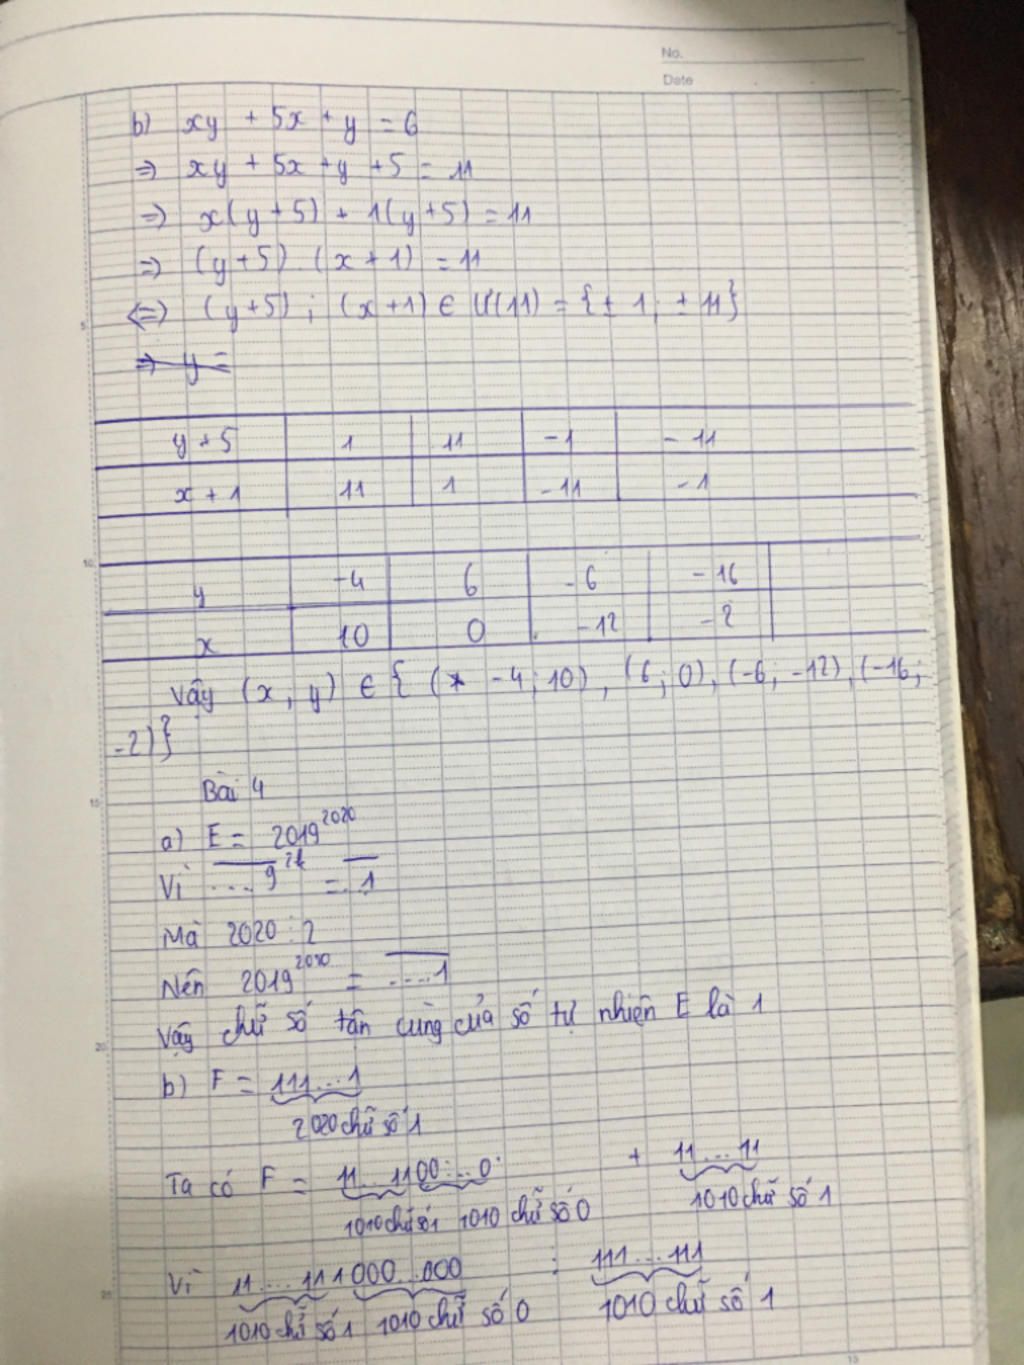 No.
Date
b) xy + 5x + y = 6
⇒ xy + 5x + y + 5 = 11
⇒ x(y + 5) + 1(y + 5) = 11
⇒ (y + 5) . (x + 1) = 11
⇔ (y + 5) ; (x + 1) ∈ Ư(11) = {± 1 ; ± 11}
⇒ y =
y + 5 1 11 -1 -11
x + 1 11 1 -11 -1
y -4 6 -6 -16
x 10 0 -12 -2
Vậy (x, y) ∈ { (-4; 10), (6; 0), (-6; -12), (-16;
-2)}
Bài 4
a) E = 2019^2020
Vì ....9^2k = ..1
Mà 2020 ⋮ 2
Nên 2019^2020 = ....1
Vậy chữ số tận cùng của số tự nhiên E là 1
b) F = 111...1
2020 chữ số 1
Ta có F = 11...1100...0 + 11...11
1010 chữ số 1 1010 chữ số 0 1010 chữ số 1
Vì 11....111000...000 ⋮ 111...111
1010 chữ số 1 1010 chữ số 0 1010 chữ số 1
5
10
15
20
25